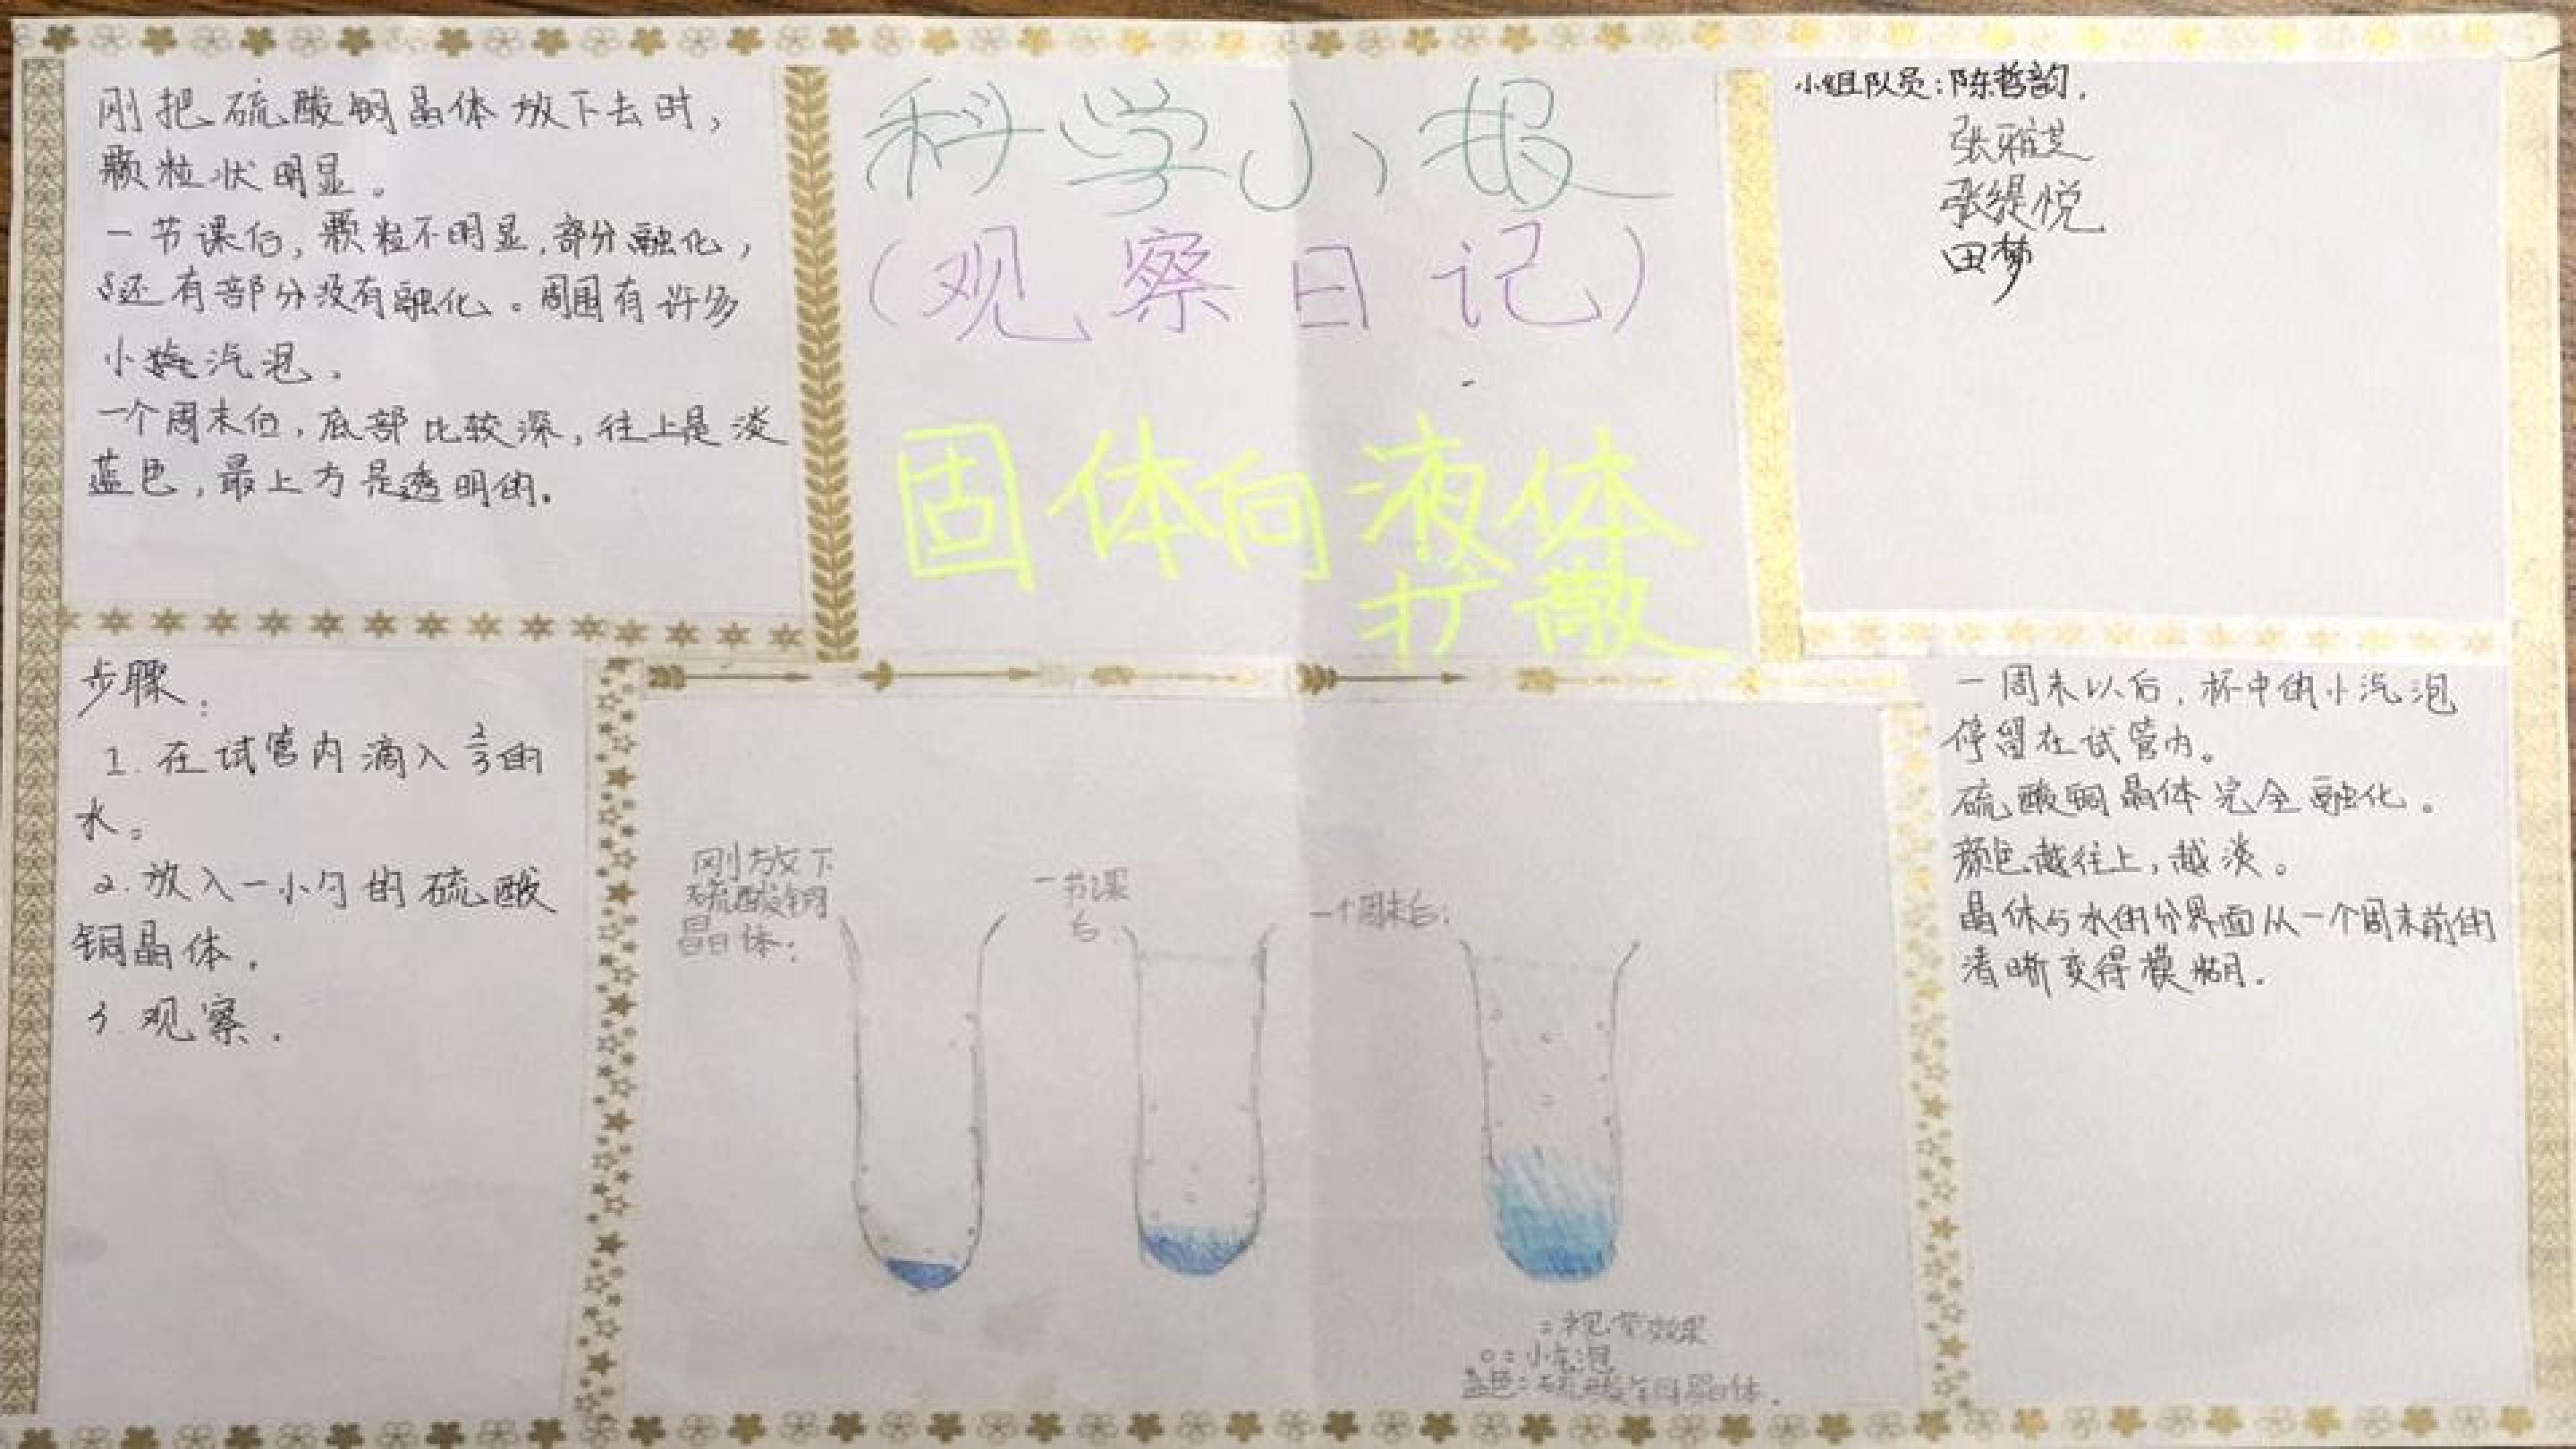 刚把硫酸铜晶体放下去时，
颗粒状明显。
一节课后，颗粒不明显，部分融化，
还有部分没有融化。周围有许多
小汽泡。
一个周末后，底部比较深，往上是淡
蓝色，最上方是透明的。
科学小报
（观察日记）
固体向液体
扩散
小组队员：陈哲韵，
张雅芝
张缇悦
田梦
步骤：
1. 在试管内滴入2/3的
水。
2. 放入一小勺的硫酸
铜晶体。
3. 观察。
刚放下
硫酸铜
晶体：
一节课
后：
一个周末后：
=视觉效果
○=小气泡
蓝色：硫酸铜晶体.
一周末以后，杯中的小汽泡
停留在试管内。
硫酸铜晶体完全融化。
颜色越往上，越淡。
晶体与水的分界面从一个周末前的
清晰变得模糊.